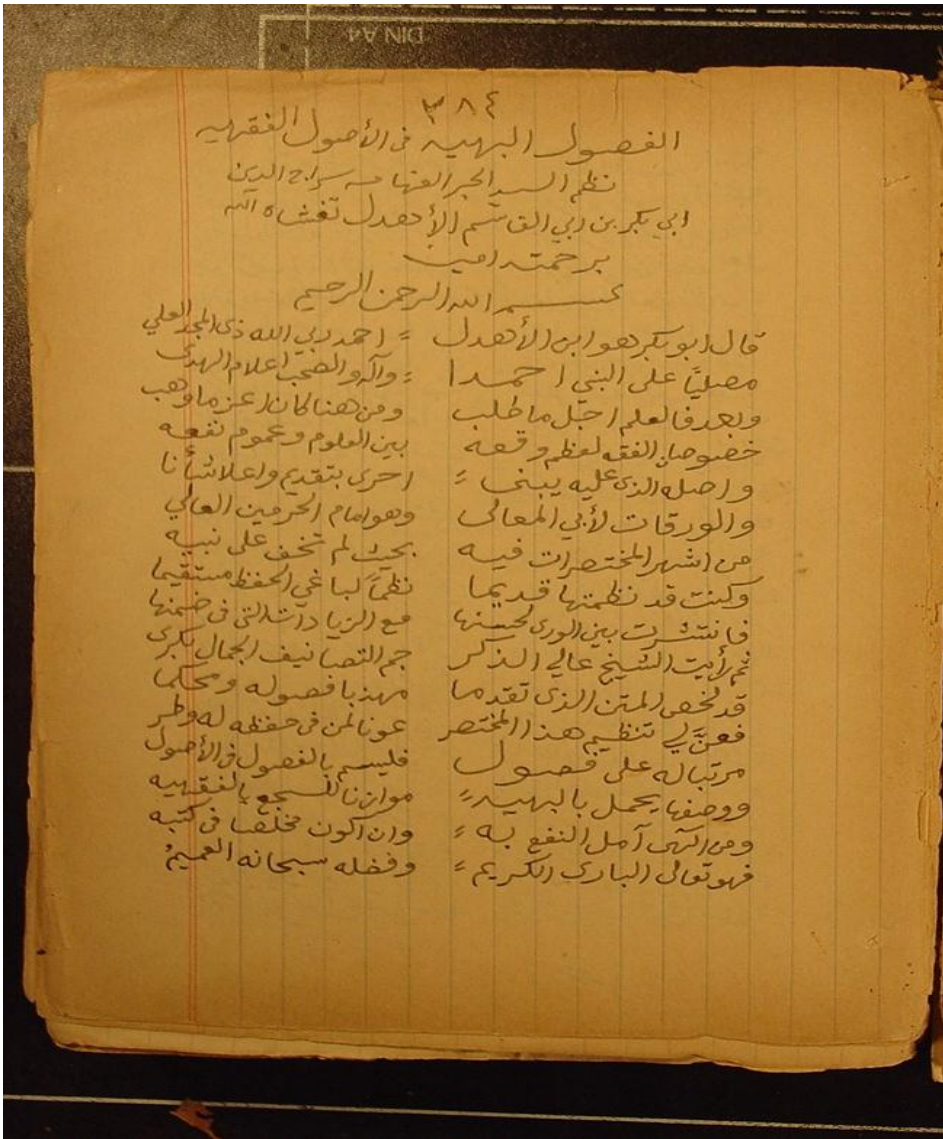 DIN A4
٣٨٤
الفصول البهيه فى الأصول الفقهيه
نظم السيد الحبر الفهامه سراج الدين
ابي بكر بن ابي القاسم الأهدل تغشاه الله
برحمته امين
بسم الله الرحمن الرحيم
قال ابو بكر هو ابن الأهدل = احمد ربي الله ذى المجد العلي
مصلياً على النبي احمدا = وآله والصحب اعلام الهدى
وبعد فالعلم اجل ما طلب ومن هنا كان اعز ما وهب
خصوصا الفقه لعظم وقعه بين العلوم وعموم نفعه
واصله الذى عليه يبنى = احرى بتقديم واعلا شأنا
والورقات لأبي المعالى وهو امام الحرمين العالي
من اشهر المختصرات فيه بحيث لم تخف على نبيه
وكنت قد نظمتها قديما نظماً لباغي الحفظ مستقيما
فانتشرت بين الورى لحسنها مع الزيادات التى فى ضمنها
ثم رأيت الشيخ عالي الذكر جم التصانيف الجمال بكرى
قد لخص المتن الذى تقدما مهذبا فصوله ومحكما
فعنَّ لي تنظيم هذا المختصر عونا لمن فى حفظه له وطر
مرتبا له على فصول فليسم بالفصول فى الأصول
ووصفها يجمل بالبهيه = موازنا للسجع بالفقهيه
ومن الهى آمل النفع به = وان اكون مخلصا فى كتبه
فهو تعالى البارى الكريم = وفضله سبحانه العميم